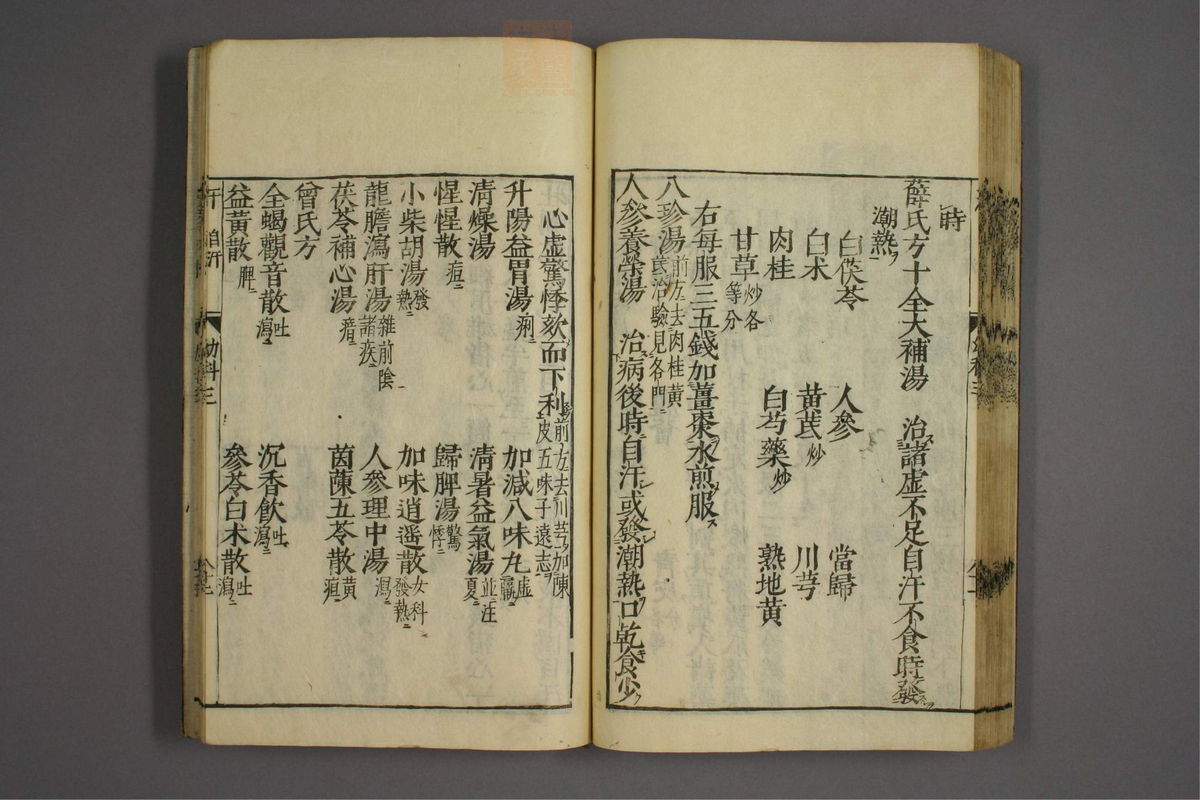 時
薛氏方十全大補湯　治諸虛不足自汗不食時發
潮熱
白茯苓　人參　當歸
白术　黃芪炒　川芎
肉桂　白芍藥炒　熟地黃
甘草炒各等分
右每服三五錢加薑棗水煎服
八珍湯前方去肉桂黃芪治驗見各門
人參養榮湯　治病後時自汗或發潮熱口乾食少
心虛驚悸欬而下利前方去川芎加陳皮五味子遠志
升陽益胃湯痢　加減八味丸虛羸
清燥湯　清暑益氣湯並注夏
惺惺散痘　歸脾湯驚悸
小柴胡湯發熱　加味逍遥散女科發熱
龍膽瀉肝湯雜前陰諸疾　人參理中湯瀉
茯苓補心湯瘖　茵蔯五苓散黃疸
曾氏方
全蝎觀音散吐瀉　沉香飲吐瀉
益黃散脾　參苓白术散吐瀉
汗　自汗　幼科三